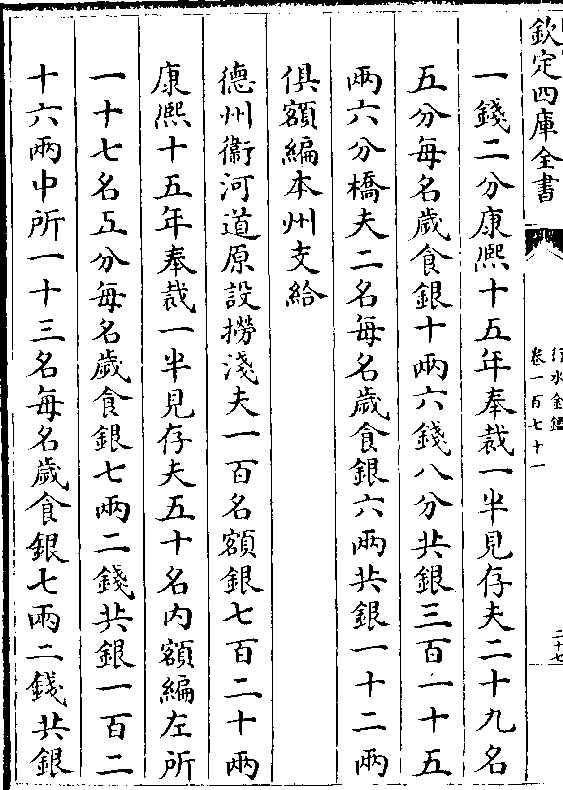 欽定四庫全書
行水金鑑
卷一百七十一
二十七
一錢二分康熙十五年奉裁一半見存夫二十九名
五分每名歲食銀十兩六錢八分共銀三百一十五
兩六分橋夫二名每名歲食銀六兩共銀一十二兩
俱額編本州支給
德州衞河道原設撈淺夫一百名額銀七百二十兩
康熙十五年奉裁一半見存夫五十名内額編左所
一十七名五分每名歲食銀七兩二錢共銀一百二
十六兩中所一十三名每名歲食銀七兩二錢共銀